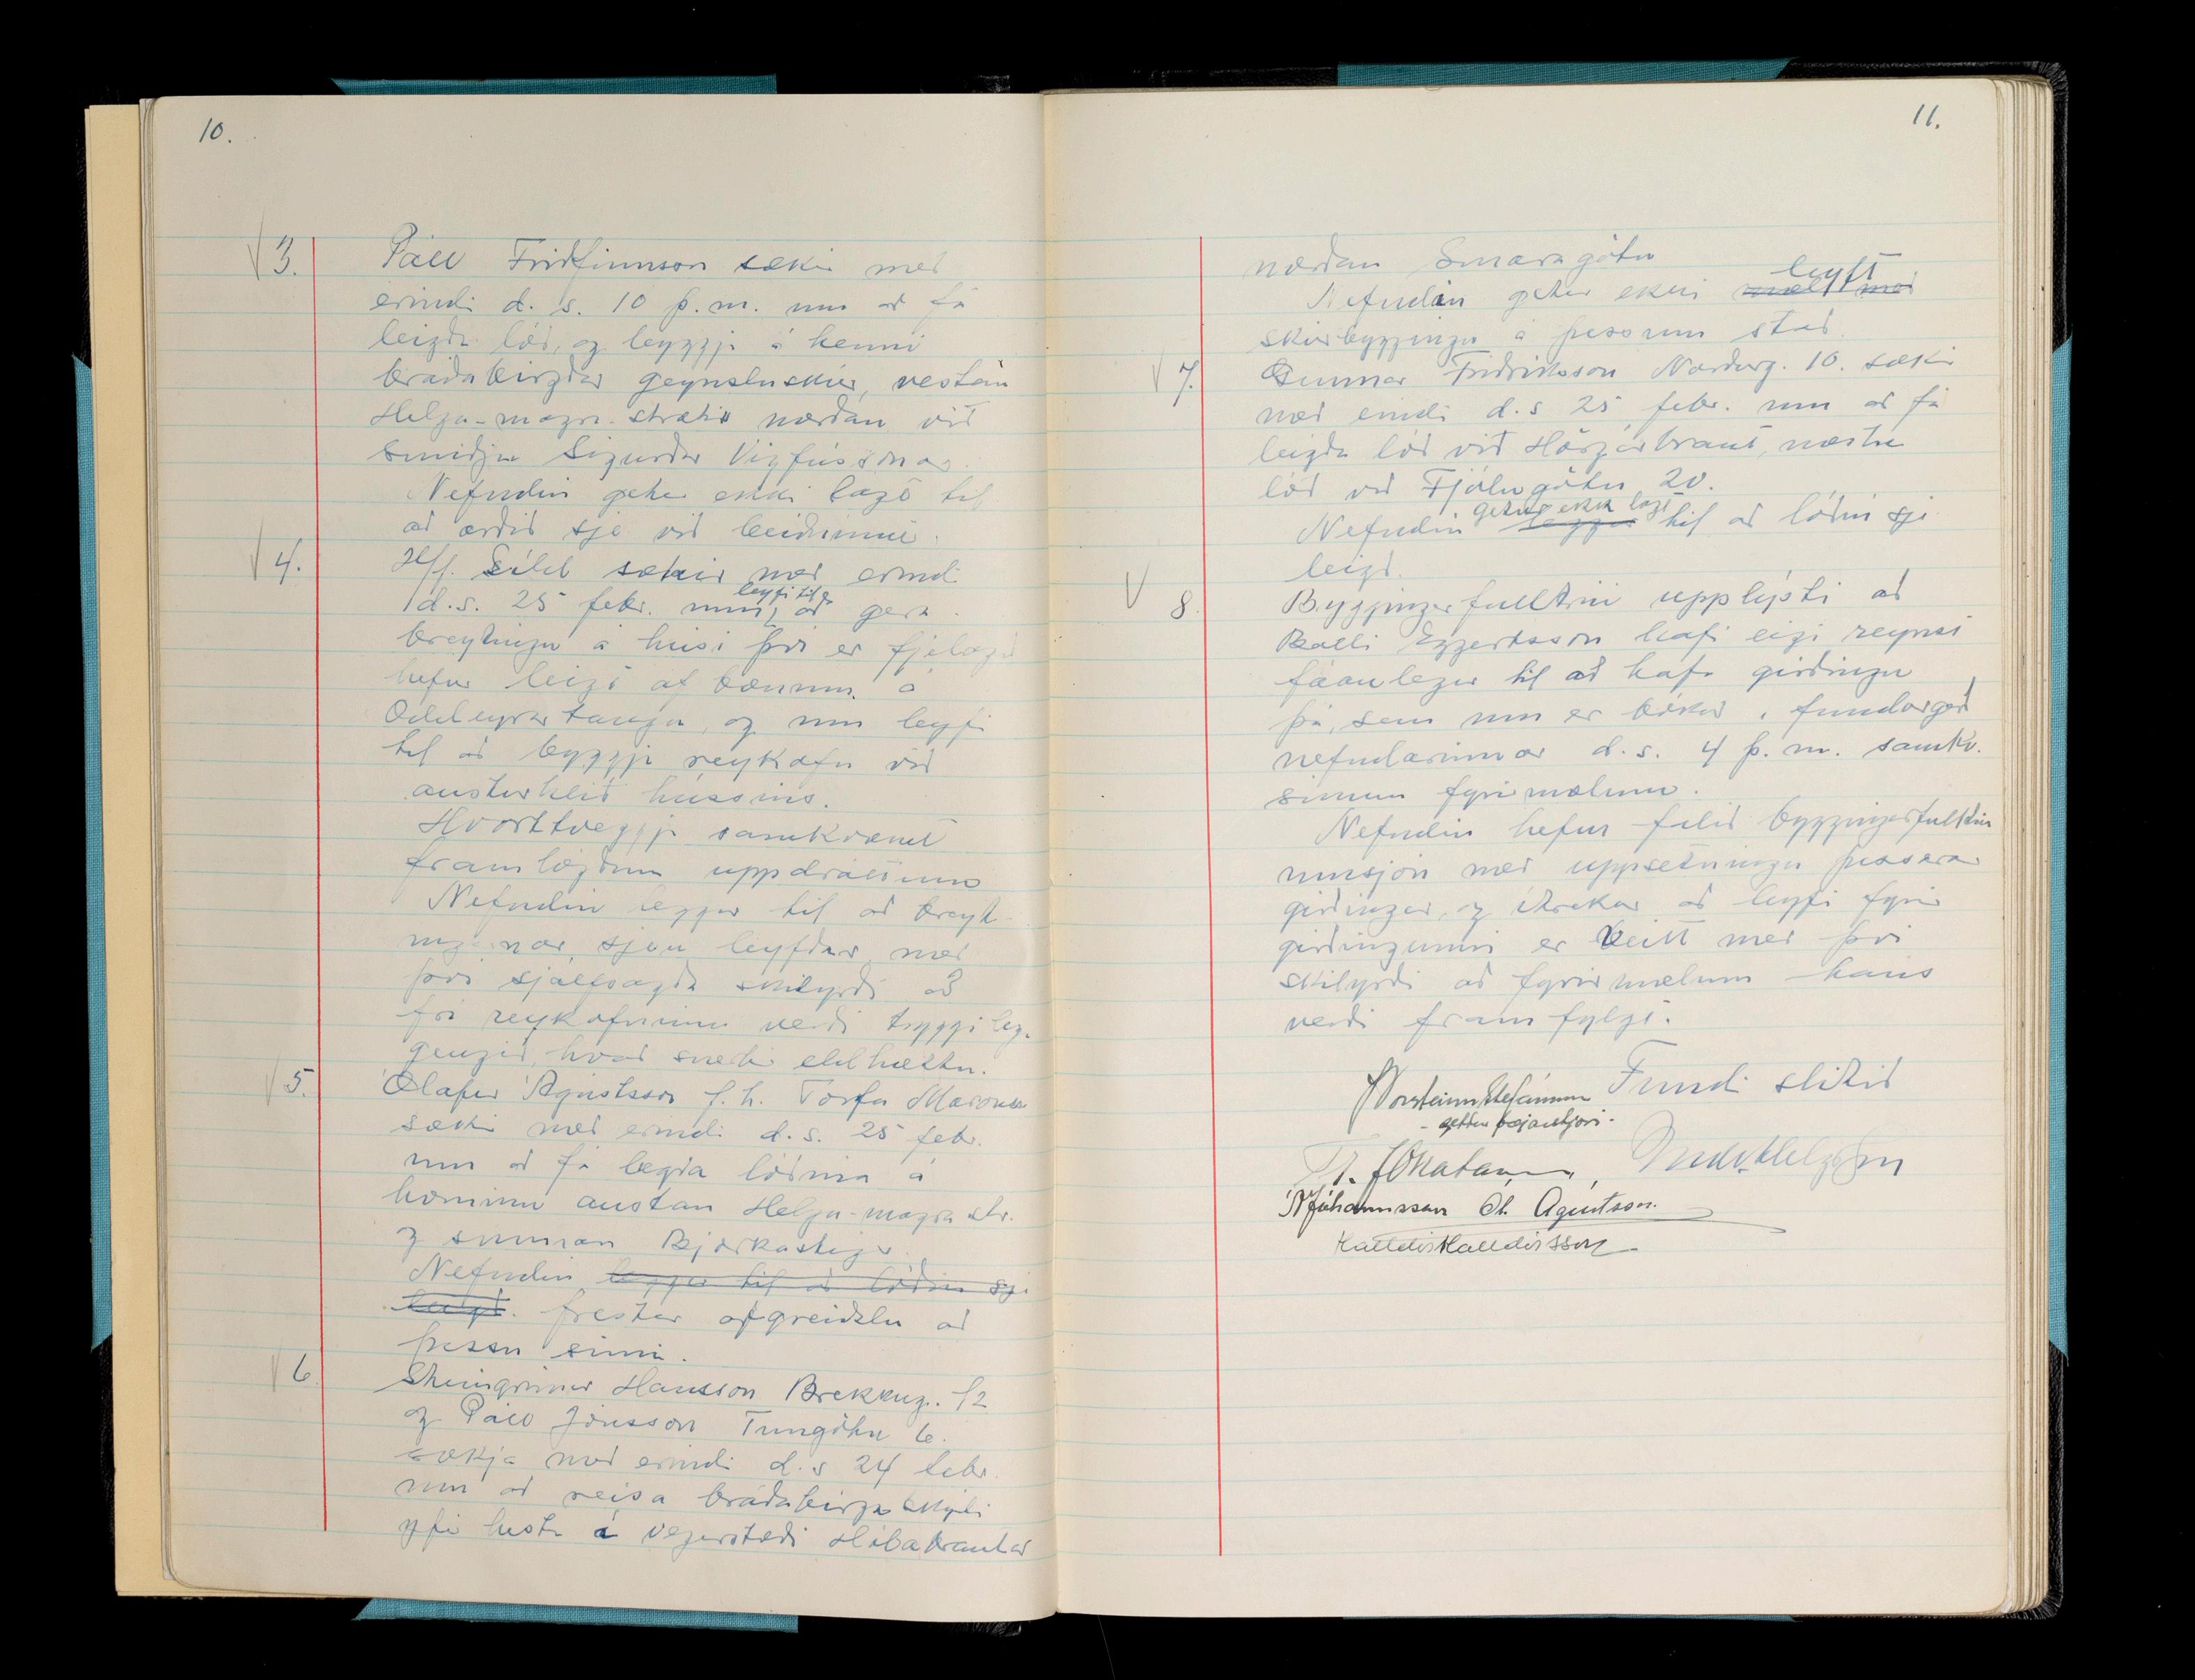 10.
V 3. Páll Friðfinnsson sækir með
erindi d. s. 10 þ.m. um að fá
leigða lóð, og byggja á henni
bráðabirgðar geymsluskúr, vestan
Helga-magra-strætis norðan við
smiðju Sigurðar Vigfússonar.
Nefndin getur ekki lagt til
að orðið sje við beiðninni.
V 4. H/f. Síld sækir með erindi
d.s. 25 febr. um leyfi til að gera
breytingu á húsi því er fjelagið
hefur leigt af bænum á
Oddeyrartanga, og um leyfi
til að byggja reykofn við
austurhlið hússins.
Hvorttveggja samkvæmt
framlögðum uppdráttum
Nefndin leggur til að breyt-
ingarnar, sjeu leyfðar með
því sjálfsagða skilyrði að
frá reykofninum verði tryggileg.
gengið, hvað snertir eldhættu.
V 5. Ólafur Ágústsson f. h. Torfa Maronss
sækir með erindi d.s. 25 febr.
um að fá leigða lóðina á
horninu austan Helga-magra str.
og sunnan Bjarkastígs.
Nefndin leggur til að lóðin sje
leigð. frestar afgreiðslu að
þessu sinni.
V 6. Steingrímur Hansson Brekkug. 12
og Páll Jónsson Tungötu 6.
sækja með erindi d.s 24 febr.
um að reisa bráðabirgða skýli
yfir hesta á vegarstæði Hlíbabrautar
11.
norðan Smáragötu
Nefndin getur ekki mælt með leyft
skúrbyggingu á þessum stað.
V 7. Gunnar Friðriksson Norðurg. 10. sækir
með erindi d.s 25 febr. um að fá
leigða lóð við Hörgárbraut, næstu
lóð við Fjólugötu 20.
Nefndin leggur getur ekki lagt til að lóðin sje
leigð.
V 8. Byggingarfulltrúi upplýsti að
Balli Eggertsson hafi eigi reynst
fáanlegur til að hafa girðingu
þá, sem um er bókað í fundargerð
nefndarinnar d.s. 4 þ.m. samkv.
sínum fyrirmælum.
Nefndin hefur falið byggingarfulltrúa
umsjón með uppsetningu þessarar
girðingar, og ítrekar að leyfi fyrir
girðingunni er veitt með því
skilyrði að fyrirmælum hans
verði framfylgt.
Fundi slitið
Þorsteinn Stefánsson
- settur bæjarstjóri -
Indr. Helgason
Jóhannsson Ol. Ágústsson.
Halldór Halldórsson